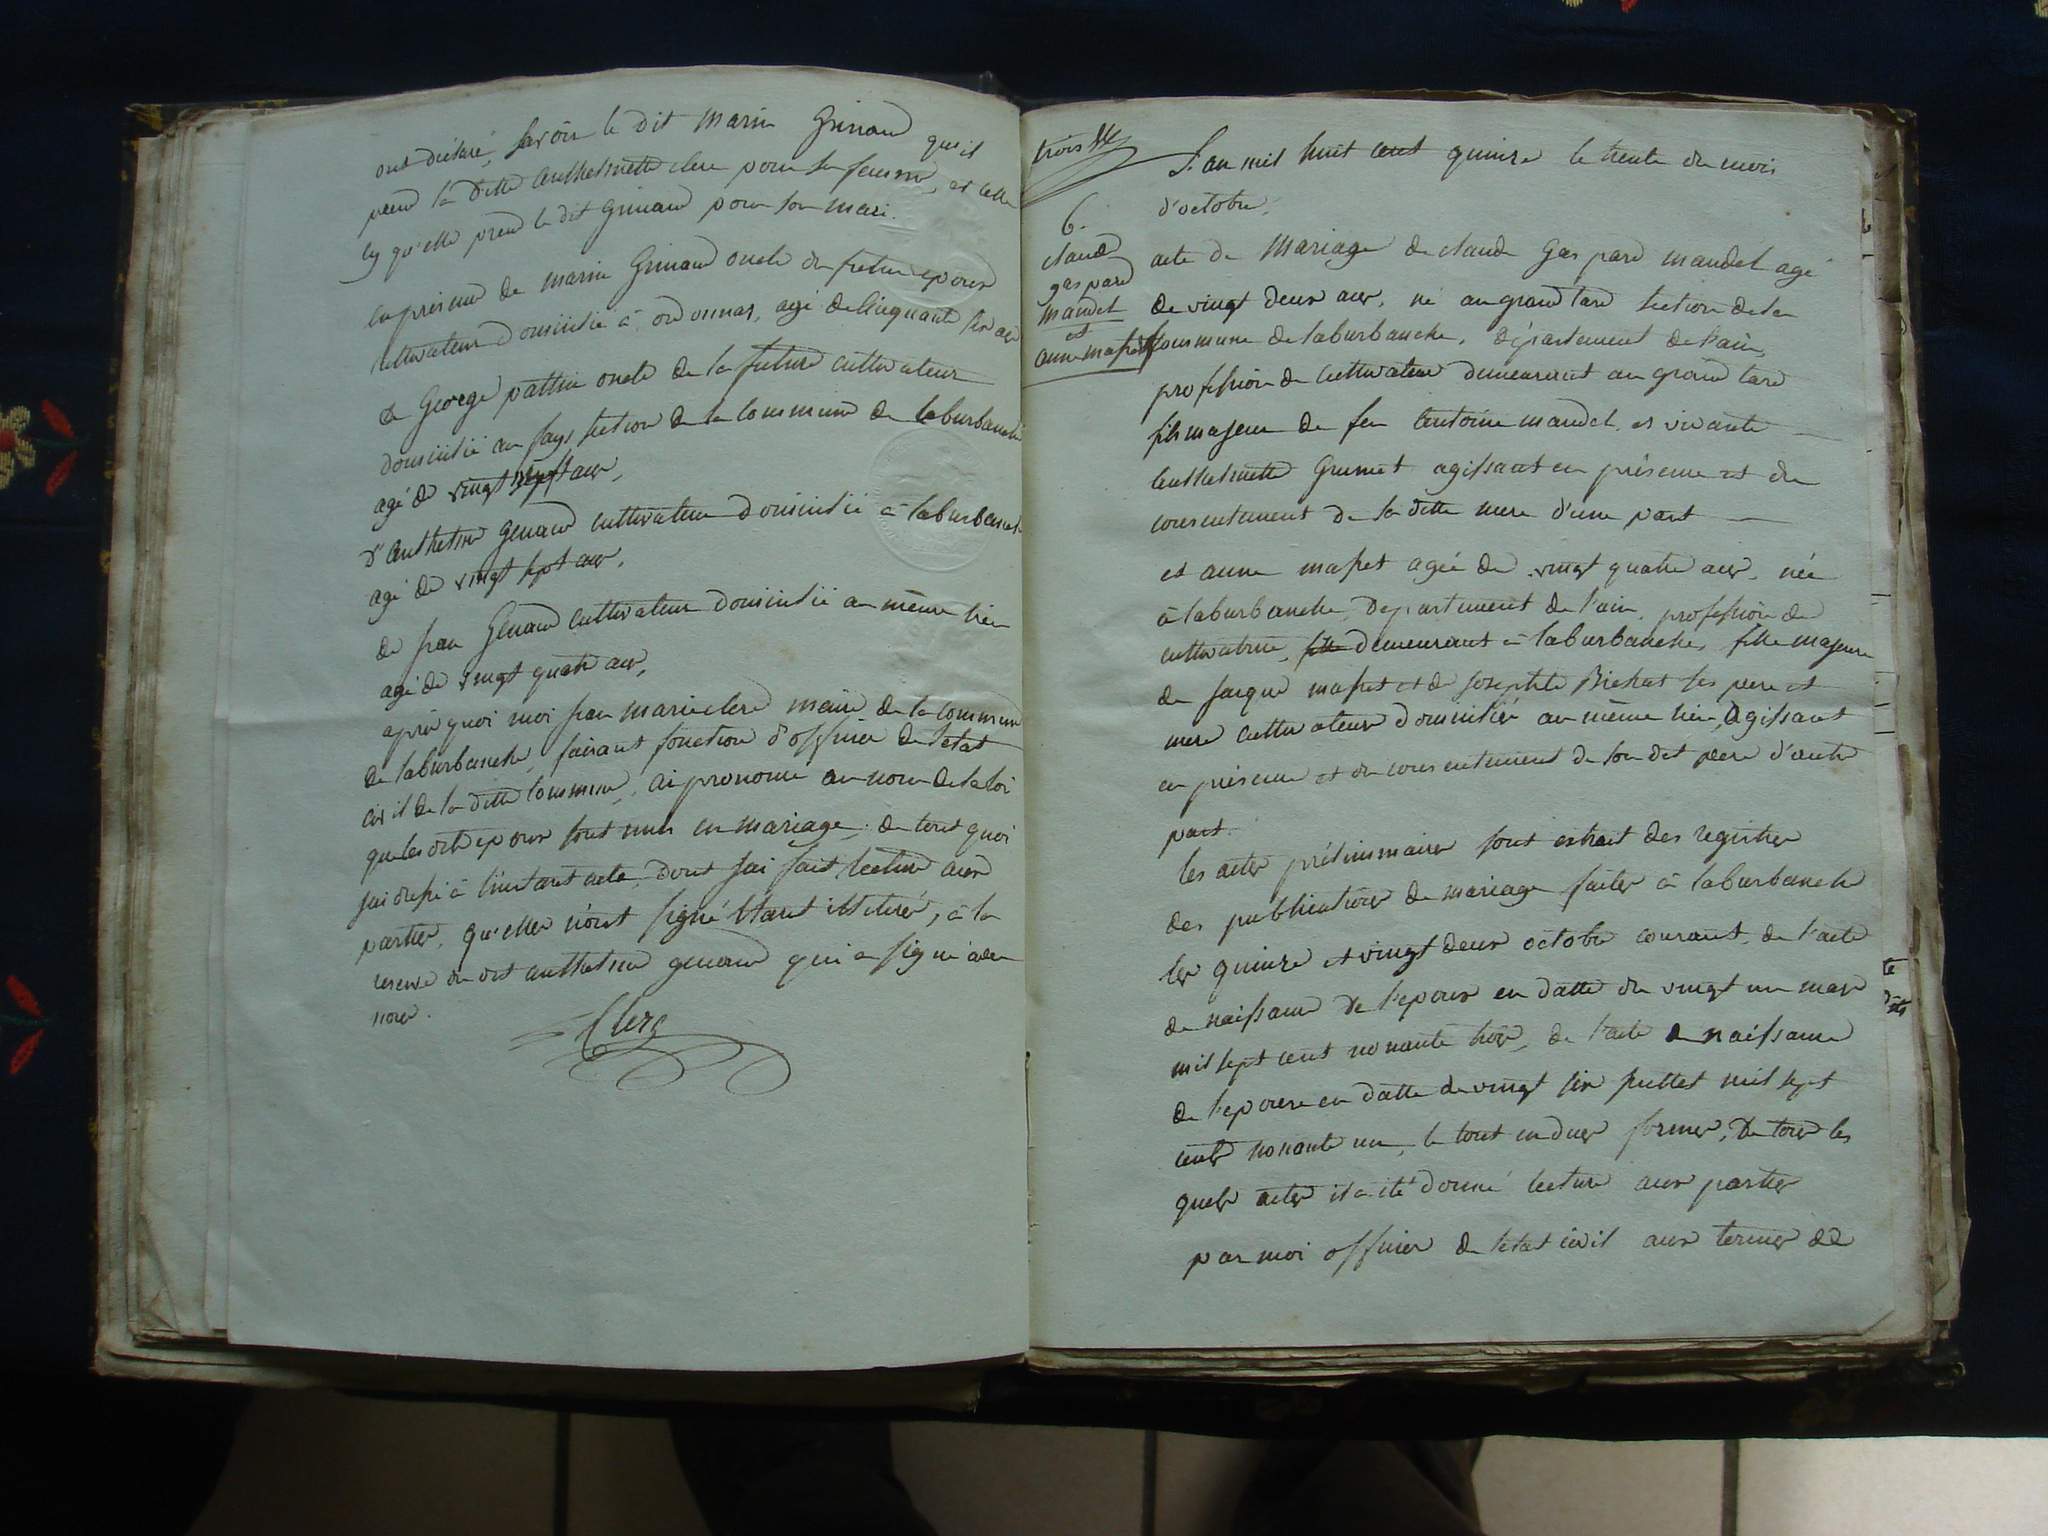 ont déclaré, savoir le dit marin Grinand qu'il
prend la ditte anthelmette clerc pour sa femme, et celle
cy qu'elle prend le dit Grinand pour son mari.
en présence de marin Grinand oncle du futur epoux
cultivateur domicilié à ordonnas, agé de cinquante six ans
de George pattin oncle de la future cultivateur
domicilié au fays section de la commune de laburbanche
agé de vingt sept ans,
d'anthelme genand cultivateur domicilié à laburbanche
agé de vingt sept ans,
de jean Genand cultivateur domicilié au même lieu
agé de vingt quatre ans,
après quoi moi jean marie clerc maire de la commune
de laburbanche, faisant fonction d'officier de l'etat
civil de la ditte commune, ai prononcé au nom de la loi
que les dits epoux sont unis en mariage, de tout quoi
j'ai dressé à l'instant acte, dont j'ai fait lecture aux
parties, qu'elles n'ont signé étant illitérés, à la
reserve du dit anthelme genand qui a signé avec
nous.
Clerc
trois
L'an mil huit cent quinze le trente du mois
d'octobre,
6.
claude
gaspard
mandet
et
anne masset
acte de Mariage de claude gaspard mandet agé
de vingt deux ans, né au grand tard section de la
commune de laburbanche, département de l'ain,
profession de cultivateur demeurant au grand tard
fils majeur de feu antoine mandet, et vivante
anthelmette Grumet agissant en présence et du
consentement de sa ditte mere d'une part
et anne masset agée de vingt quatre ans, née
à laburbanche, departement de l'ain, profession de
cultivatrice, fille demeurant à laburbanche, fille majeure
de jacque masset et de josephte Bichat ses pere et
mere cultivateurs domiciliés au même lieu, agissant
en présence et du consentement de son dit pere d'autre
part.
les actes préliminaires sont extrait des registres
des publications de mariage faites à laburbanche
les quinze et vingt deux octobre courant, de l'acte
de naissance de l'epoux en datte du vingt un mars
mil sept cent nonante trois, de l'acte de naissance
de l'epouse en datte de vingt six juillet mil sept
cents nonante un, le tout en dues formes, De tous les
quels actes il a été donné lecture aux parties
par moi officier de l'etat civil aux termes de